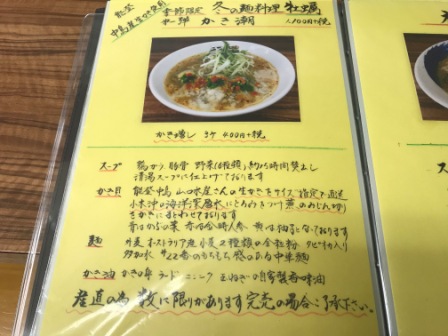 能登
中島産生かき使用
季節限定 冬の麺料理 牡蠣
かき潮 1,100円+税
かき増し 3ケ 400円+税
スープ 鶏がら 豚骨 野菜(6種類) 約5時間焚上し
清湯スープに仕上げております
かき貝 能登中島 山口水産さんの生かきをサイズ指定で直送
小木沖の海洋深層水にとろみをつけ 葱のみじん切り
をかきにまとわせております
麺 外麦 オーストラリア産 小麦2種類の全粒粉 タピオカ入り
多加水 のもちもち感のある中華麺
かき油 玉ねぎの自家製香味油
産直の為 数に限りがあります 完売の場合ご了承下さい。